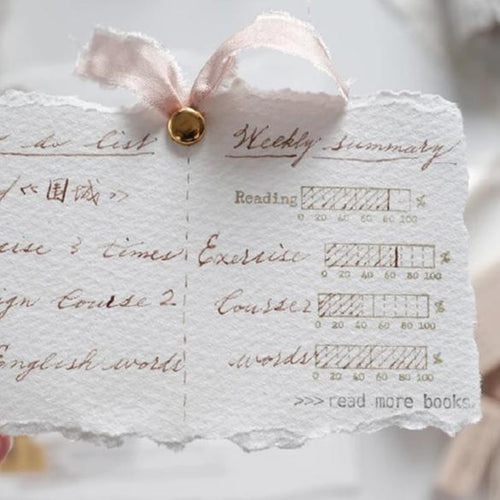 do list
《围城》
3 times
Course 2
English words
Weekly summary
Reading %
0 20 40 60 80 100
Exercise %
0 20 40 60 80 100
Course2 %
0 20 40 60 80 100
words %
0 20 40 60 80 100
>>> read more books.